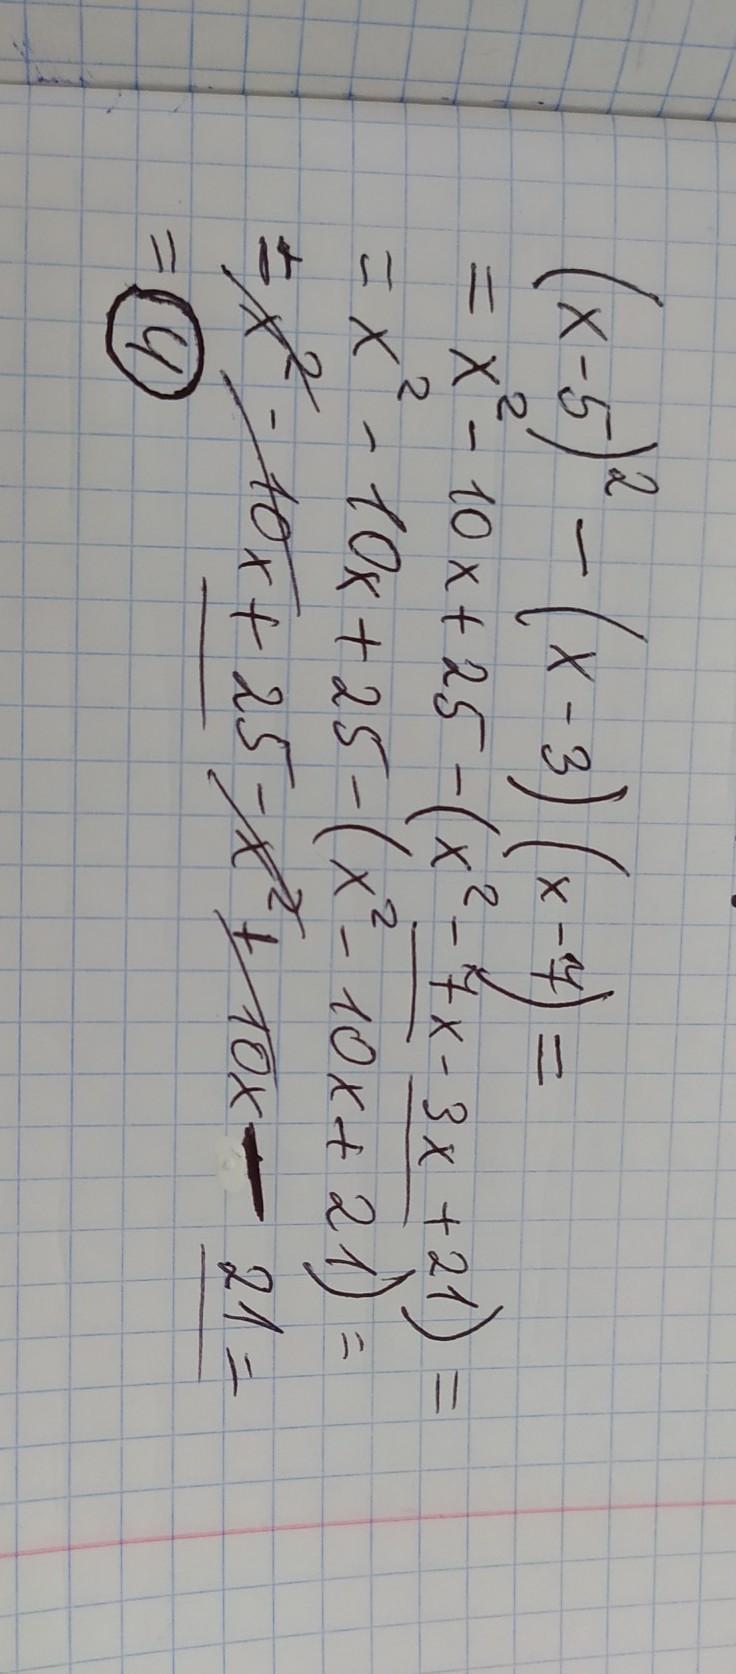 (x-5)² - (x-3)(x-7) =
= x² - 10x + 25 - (x² - 7x - 3x + 21) =
= x² - 10x + 25 - (x² - 10x + 21) =
= x² - 10x + 25 - x² + 10x - 21 =
= 4